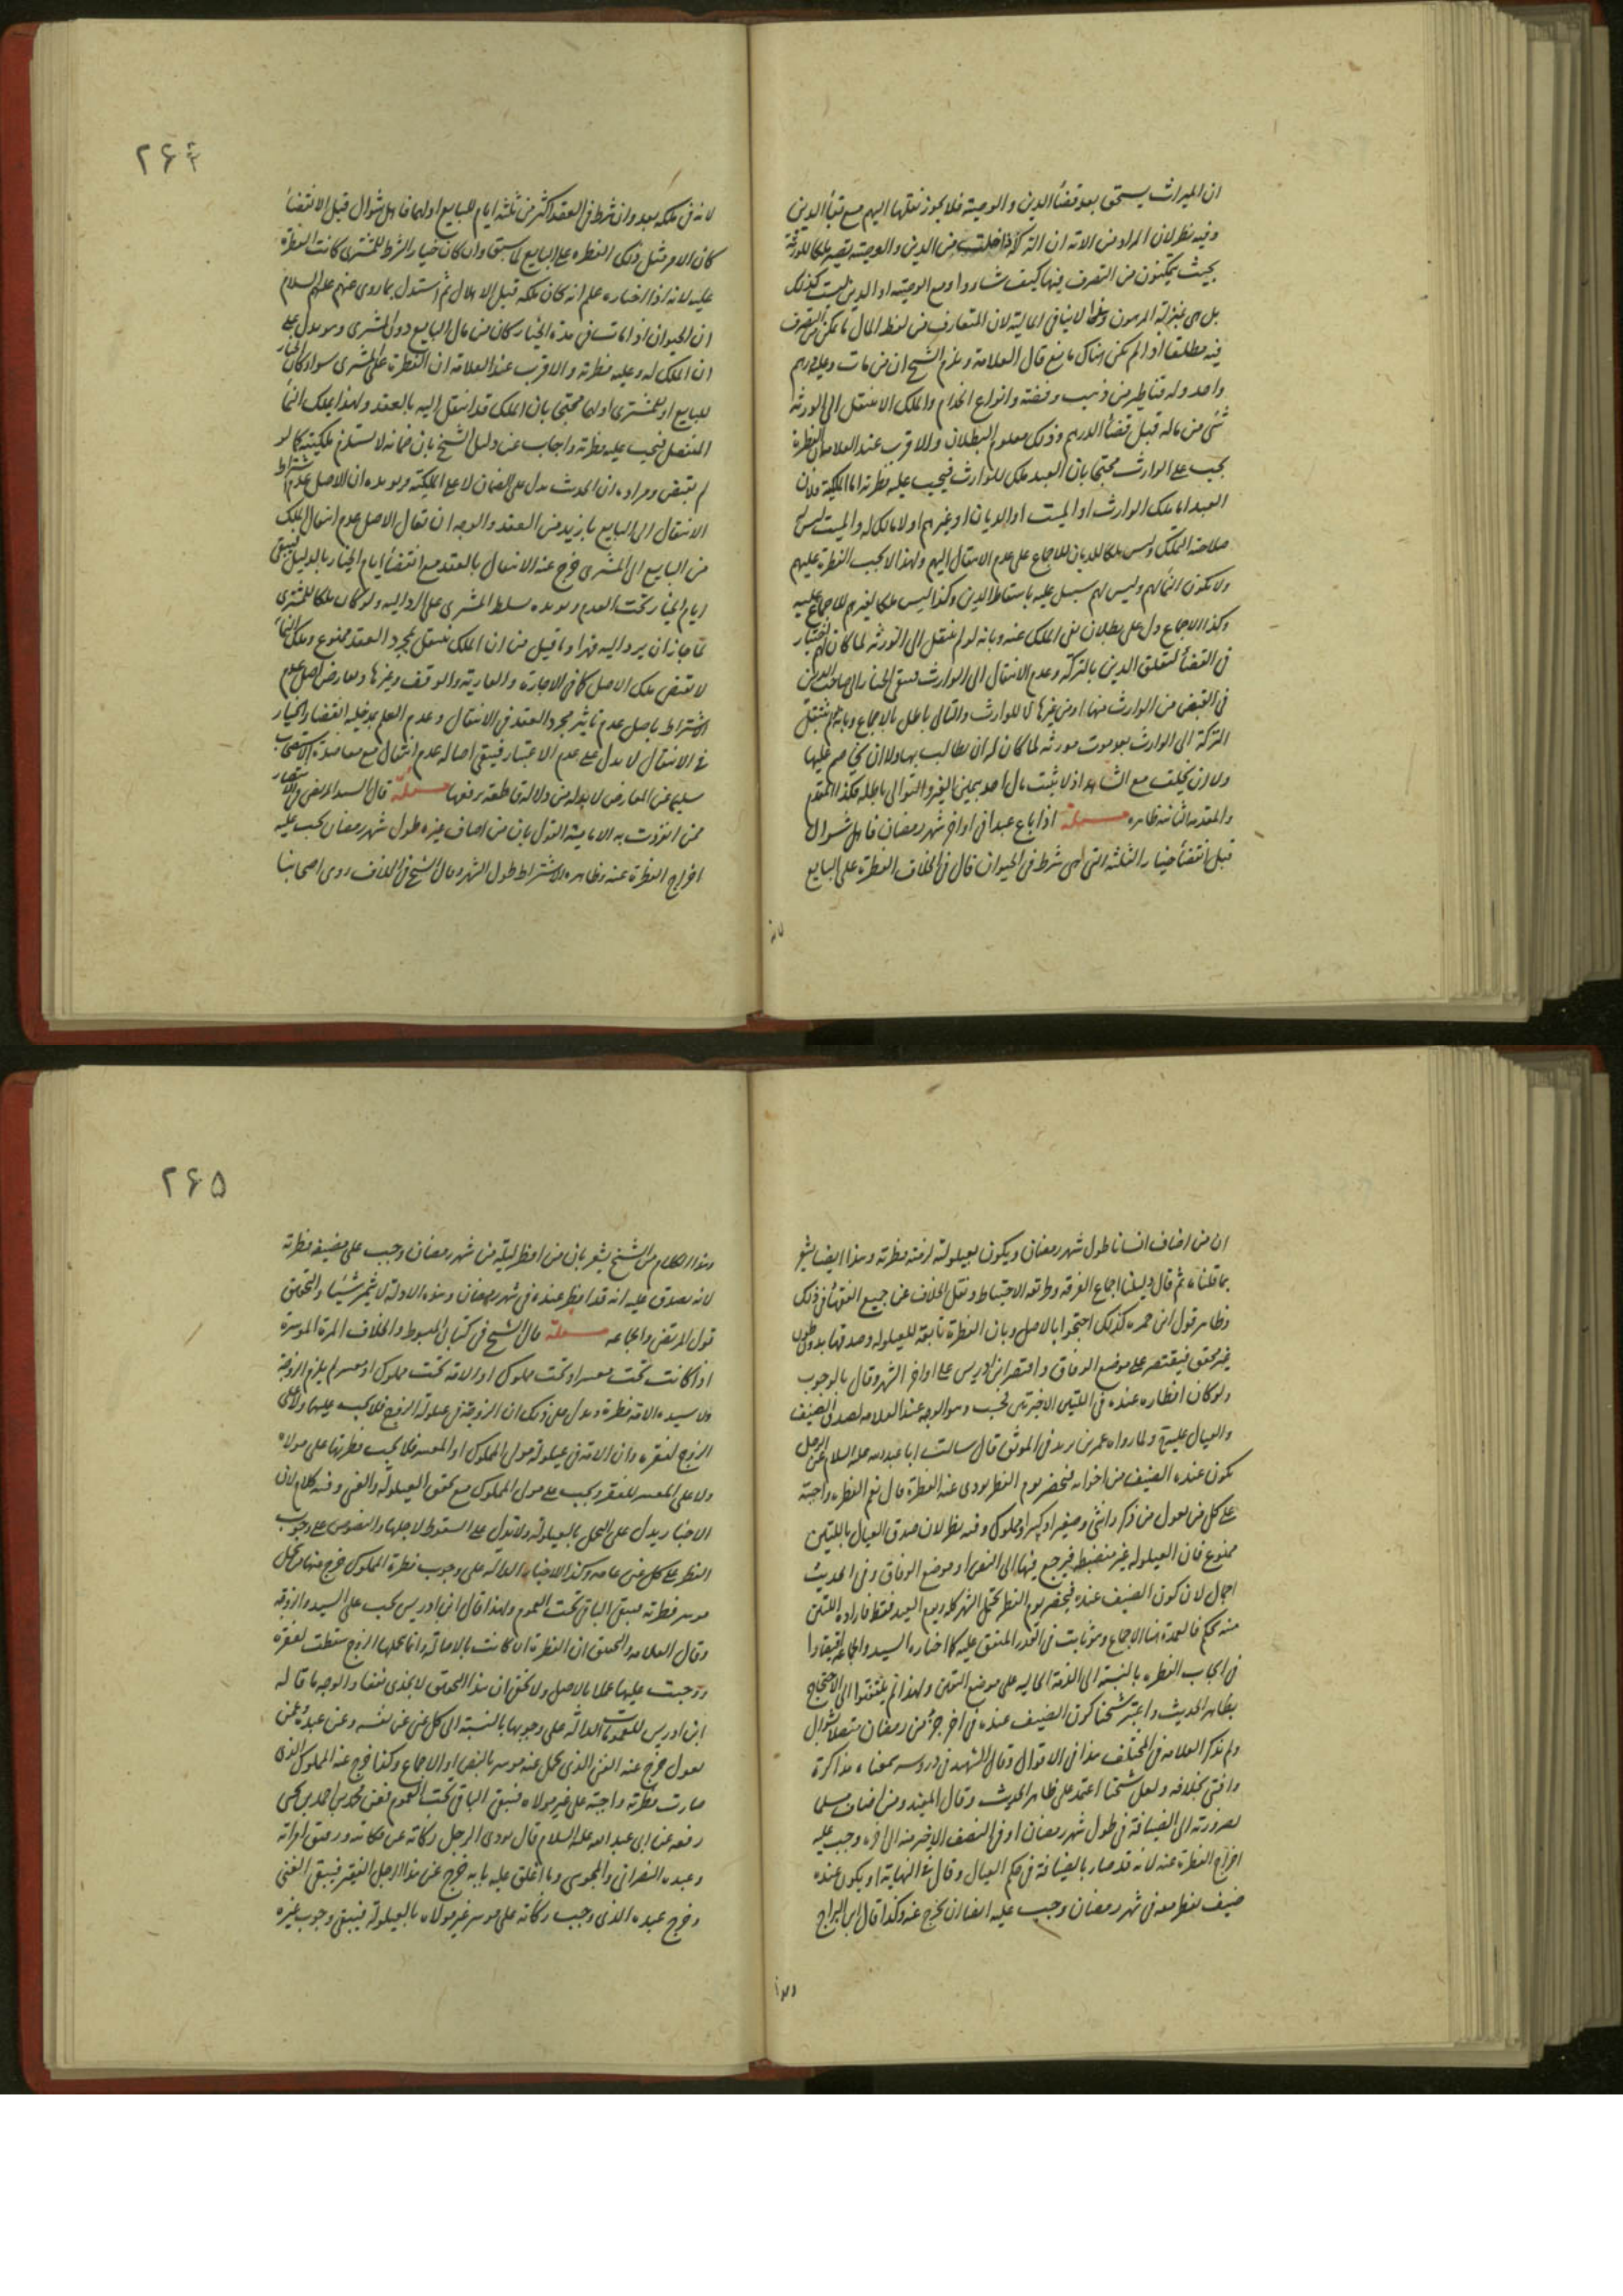 ان الميراث يستحق بعد قضأ الدين والوصية فلا يجوز نقلها اليهم مع بقأ الدين
وفيه نظر لان المراد من الاية ان التركة اذا خلت من الدين والوصية يصير ملكا للورثة
بحيث يتمكنون من التصرف فيها كيف شاروا ومع الوصية او الدين ليست كذلك
بل هى بمنزلة المرهون وهذا لا ينافى المالية لان المتعارف من لفظ المال ما يمكن من التصرف
فيه مطلقا اذا لم يكن هناك مانع قال العلامة ويلزم الشيخ ان من مات وعليه درهم
واحد وله قناطير من ذهب وفضة وانواع الخدام والملك الا ينتقل الى الورثة
شئ من ماله قبل قضأ الدرهم وذلك معلوم البطلان والاقرب عند العلامة ان الفطرة
يجب على الوارث محتجا بان العبد ملك للوارث فيجب عليه فطرته اما الملكية فلان
العبد اما ملك الوارث او الميت او الديان او غيرهم او لا مالك له والميت ليس له
صلاحية التملك وليس ملكا للديان للاجماع على عدم الانتقال اليهم ولهذا لا يجب الفطرة عليهم
ولا يكون النمأ لهم وليس لهم سبيل عليه باسقاط الدين وكذا ليس ملكا لغيرهم للاجماع عليه
وكذا الاجماع دل على بطلان نفى الملك عنه وبانه لو لم ينتقل الى الورثة لما كان لهم اختيار
فى القضأ لتعلق الدين بالتركة وعدم الانتقال الى الوارث فيبقى الخيار الى صاحب الدين
فى القبض من الوارث منها او من غيرها لا للوارث والتالى باطل بالاجماع وبانه لو لم ينتقل
التركة الى الوارث بعد موت مورثه لما كان له ان يطالب بها ولا ان يخاصم عليها
ولا ان يحلف مع الشاهد اذ لا يثبت مال احد بيمين الغير والتوالى باطلة فكذا المقدم
والمقدمة الثانية ظاهرة مسئلة اذا باع عبدا فى اواخر شهر رمضان فاهل شوال
قبل انقضأ خيار الثلثة التى هى شرط فى الحيوان قال فى الخلاف الفطرة على البايع
لانه
۲۶۴
لانه فى ملكه بعد وان شرط فى العقد اكثر من ثلثة ايام للبايع او لهما فاهل شوال قبل الانقضأ
كان الامر مثل ذلك الفطرة على البايع لما سبق وان كان خيار الشرط للمشترى كانت الفطرة
عليه لانه اذا اختاره علم انه كان ملكه قبل الاهلال ثم استدل بما روى عنهم عليهم السلام
ان الحيوان اذا مات فى مدة الخيار كان من مال البايع دون المشترى وهو يدل على
ان الملك له وعليه فطرته والاقرب عند العلامة ان الفطرة على المشترى سواء كان الخيار
للبايع او للمشترى او لهما محتجا بان الملك قد انتقل اليه بالعقد ولهذا يملك النمأ
المنفصل فيجب عليه فطرته واجاب عن دليل الشيخ بان ضمانه لا يستلزم ملكيته كما لو
لم يقبض ومراده ان الحديث يدل على الضمان لا على الملكية ويؤيده ان الاصل عدم اشتراط
الانتقال الى البايع بازيد من العقد والوجه ان يقال الاصل عدم انتقال الملك
من البايع الى المشترى خرج عنه الانتقال بالعقد مع انقضأ ايام الخيار بالدليل فيبقى
ايام الخيار تحت العدم ويؤيده سلط المشترى على الرد اليه ولو كان ملكا للمشترى
لما جاز ان يرد اليه قهرا وما قيل من ان الملك ينتقل بمجرد العقد ممنوع وملك النمأ
لا يقتضى ملك الاصل كما فى الاجارة والعارية والوقف وغيرها ويعارض اصل عدم
الاشتراط باصل عدم تاثير مجرد العقد فى الانتقال وعدم العلم بمدخلية انقضاء الخيار
فى الانتقال لا يدل على عدم الاعتبار فيبقى اصالة عدم انتقال مع معاضدة الاستصحاب
سليم عن المعارض لا بد له من دلالة قاطعة يرفعها مسئلة قال السيد المرتضى فى الانتصار
ممن انفردت به الامامية القول بان من اضاف غيره طول شهر رمضان يجب عليه
اخراج الفطرة عنه وظاهره الاشتراط طول الشهر وقال الشيخ فى الخلاف روى اصحابنا
ان من اضاف انسانا طول شهر رمضان ويكون بعيلولته لزمته فطرته وهذا ايضا يشعر
بما قلناه ثم قال دليلنا اجماع الفرقة وطريقة الاحتياط ونقل الخلاف عن جميع الفقهأ فى ذلك
وظاهر قول ابن حمزه كذلك احتجوا بالاصل وبان الفطرة تابعة للعيلولة وصدقها بدون طول
غير محقق فيقتصر على موضع الوفاق واقتصر ابن ادريس على اواخر الشهر وقال بالوجوب
ولو كان افطاره عنده فى الليلتين الاخيرتين يجب وهو الوجه عند العلامة لصدق الضيف
والعيال عليه ولما رواه عمر بن يزيد فى الموثق قال سالت ابا عبد الله عليه السلام عن الرجل
يكون عنده الضيف من اخوانه فيحضر يوم الفطر يودى عنه الفطرة قال نعم الفطرة واجبة
على كل من يعول من ذكر وانثى وصغير او كبير او مملوك وفيه نظر لان صدق العيال بالليلتين
ممنوع فان العيلولة غير منضبطة فيرجع فيها الى النص او موضع الوفاق وفى الحديث
اجمال لان كون الضيف عنده فيحضر يوم الفطر يحتمل الشهر كله ويوم العيد فقط فارادة الليلتين
منه تحكم فالعمدة هنا الاجماع وهو ثابت فى القدر المتفق عليه كما اختاره السيد والجماعة اقتصادا
فى ايجاب الفطرة بالنسبة الى الذمة الخالية على موضع اليقين ولهذا لم يلتفتوا الى الاحتجاج
بظاهر الحديث واعتبر شيخنا كون الضيف عنده فى اخر جزء من رمضان متصلا بشوال
ولم يذكر العلامة فى المختلف هذا فى الاقوال وقال الشهيد فى دروسه سمعناه مذاكرة
وافتى بخلافه ولعل شيخنا اعتمد على ظاهر الحديث وقال المفيد ومن اضاف مسلما
لضرورته الى الضيافة فى طول شهر رمضان او فى النصف الاخير منه الى اخره وجب عليه
اخراج الفطرة عنه لانه قد صار بالضيافة فى حكم العيال وقال فى النهاية او يكون عنده
ضيف يفطر معه فى شهر رمضان وجب عليه ايضا ان يخرج عنه وكذا قال ابن البراج
وهذا
۲۶۵
وهذا الكلام من الشيخ يشعر بان من افطر ليلة من شهر رمضان وجب على مضيفه فطرته
لانه يصدق عليه انه قد افطر عنده فى شهر رمضان وهذه الادلة لا يثمر شيئا والتحقيق
قول المرتضى والجماعة مسئلة قال الشيخ فى كتابى المبسوط والخلاف المرة الموسرة
اذا كانت تحت معسر او تحت مملوك او الامة تحت مملوك او معسر لم يلزم الزوجة
ولا سيده الامة فطرة ويدل على ذلك ان الزوجة فى عيلولة الزوج فلا يجب عليها ولا على
الزوج لفقره وان الامة فى عيلولة مولى المملوك او المعسر فلا يجب فطرتها على مولاه
ولا على المعسر للفقر ويجب على مولى المملوك مع تحقق العيلولة والغنى وفيه كلام لان
الاخبار يدل على التحمل بالعيلولة ولا يدل على السقوط لاجلها والنصوص على وجوب
الفطر على كل غنى عامة وكذا الاخبار الدالة على وجوب فطرة المملوك خرج منها من تحمل
موسر فطرته فيبقى الباقى تحت العموم ولهذا قال ابن ادريس يجب على السيد والزوجة
وقال العلامة والتحقيق ان الفطرة ان كانت بالاصالة وانما تحملها الزوج سقطت لفقره
ووجبت عليها عملا بالاصل ولا يخفى ان هذا التحقيق لا يجدى نفعا والوجه ما قاله
ابن ادريس للعمومات الدالة على وجوبها بالنسبة الى كل غنى عن نفسه وعن عبده وعمن
يعول خرج عنه الغنى الذى تحمل عنه موسر بالنص او الاجماع وكذا خرج عنه المملوك الذى
صارت فطرته واجبة على غير مولاه فيبقى الباقى تحت العموم فعن محمد بن احمد بن يحيى
رفعه عن ابى عبد الله عليه السلام قال يودى الرجل زكاته عن مكاتبه ورقيق امراته
وعبده النصرانى والمجوسى وما اغلق عليه بابه خرج عن هذا الرجل الفقير فيبقى الغنى
وخرج عبده الذى وجب زكاته على موسر غير مولاه بالعيلولة فيبقى وجوب غيره